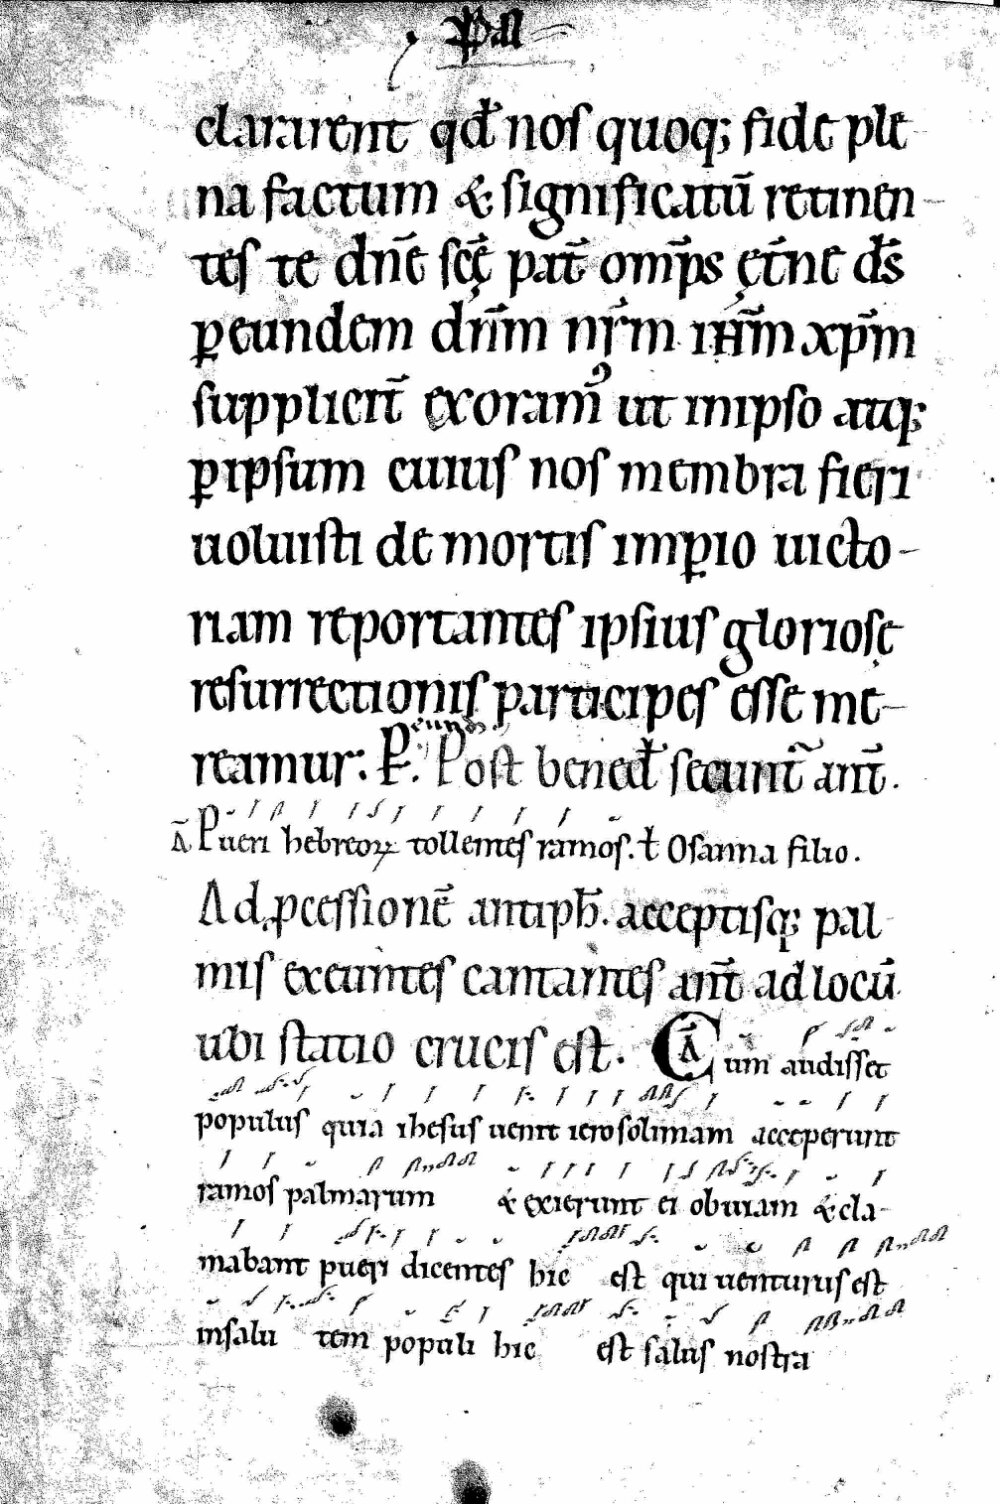 Pal
clararent qđ nos quoq; fide ple
na factum & significatū retinen-
tes te dn̄e sc̄ę pat̄ om̄ps ęt̄ne ds̄
p̱eundem dn̄m nr̄m ih̄m xp̄m
supplicit̄ exoram᾽ ut inipso atq;
p̱ipsum cuius nos membra fieri
uoluisti de mortis imp̱io uicto-
riam reportantes ipsius gloriosę
resurrectionis participes esse me-
reamur: P̱. Post bened̄ secunt̄ ant̄.
Ā Pueri hebreoꝝ tollentes ramos. ł Osanna filio.
Ad p̱cessionē antiph̄. acceptisq; pal
mis exeuntes cantantes ant̄ ad locū
ubi statio crucis est. Ā Cum audisset
populus quia ihesus uenit ierosolimam acceperunt
ramos palmarum & exierunt ei obuiam & cla-
mabant pueri dicentes hic est qui uenturus est
insalu tem populi hic est salus nostra